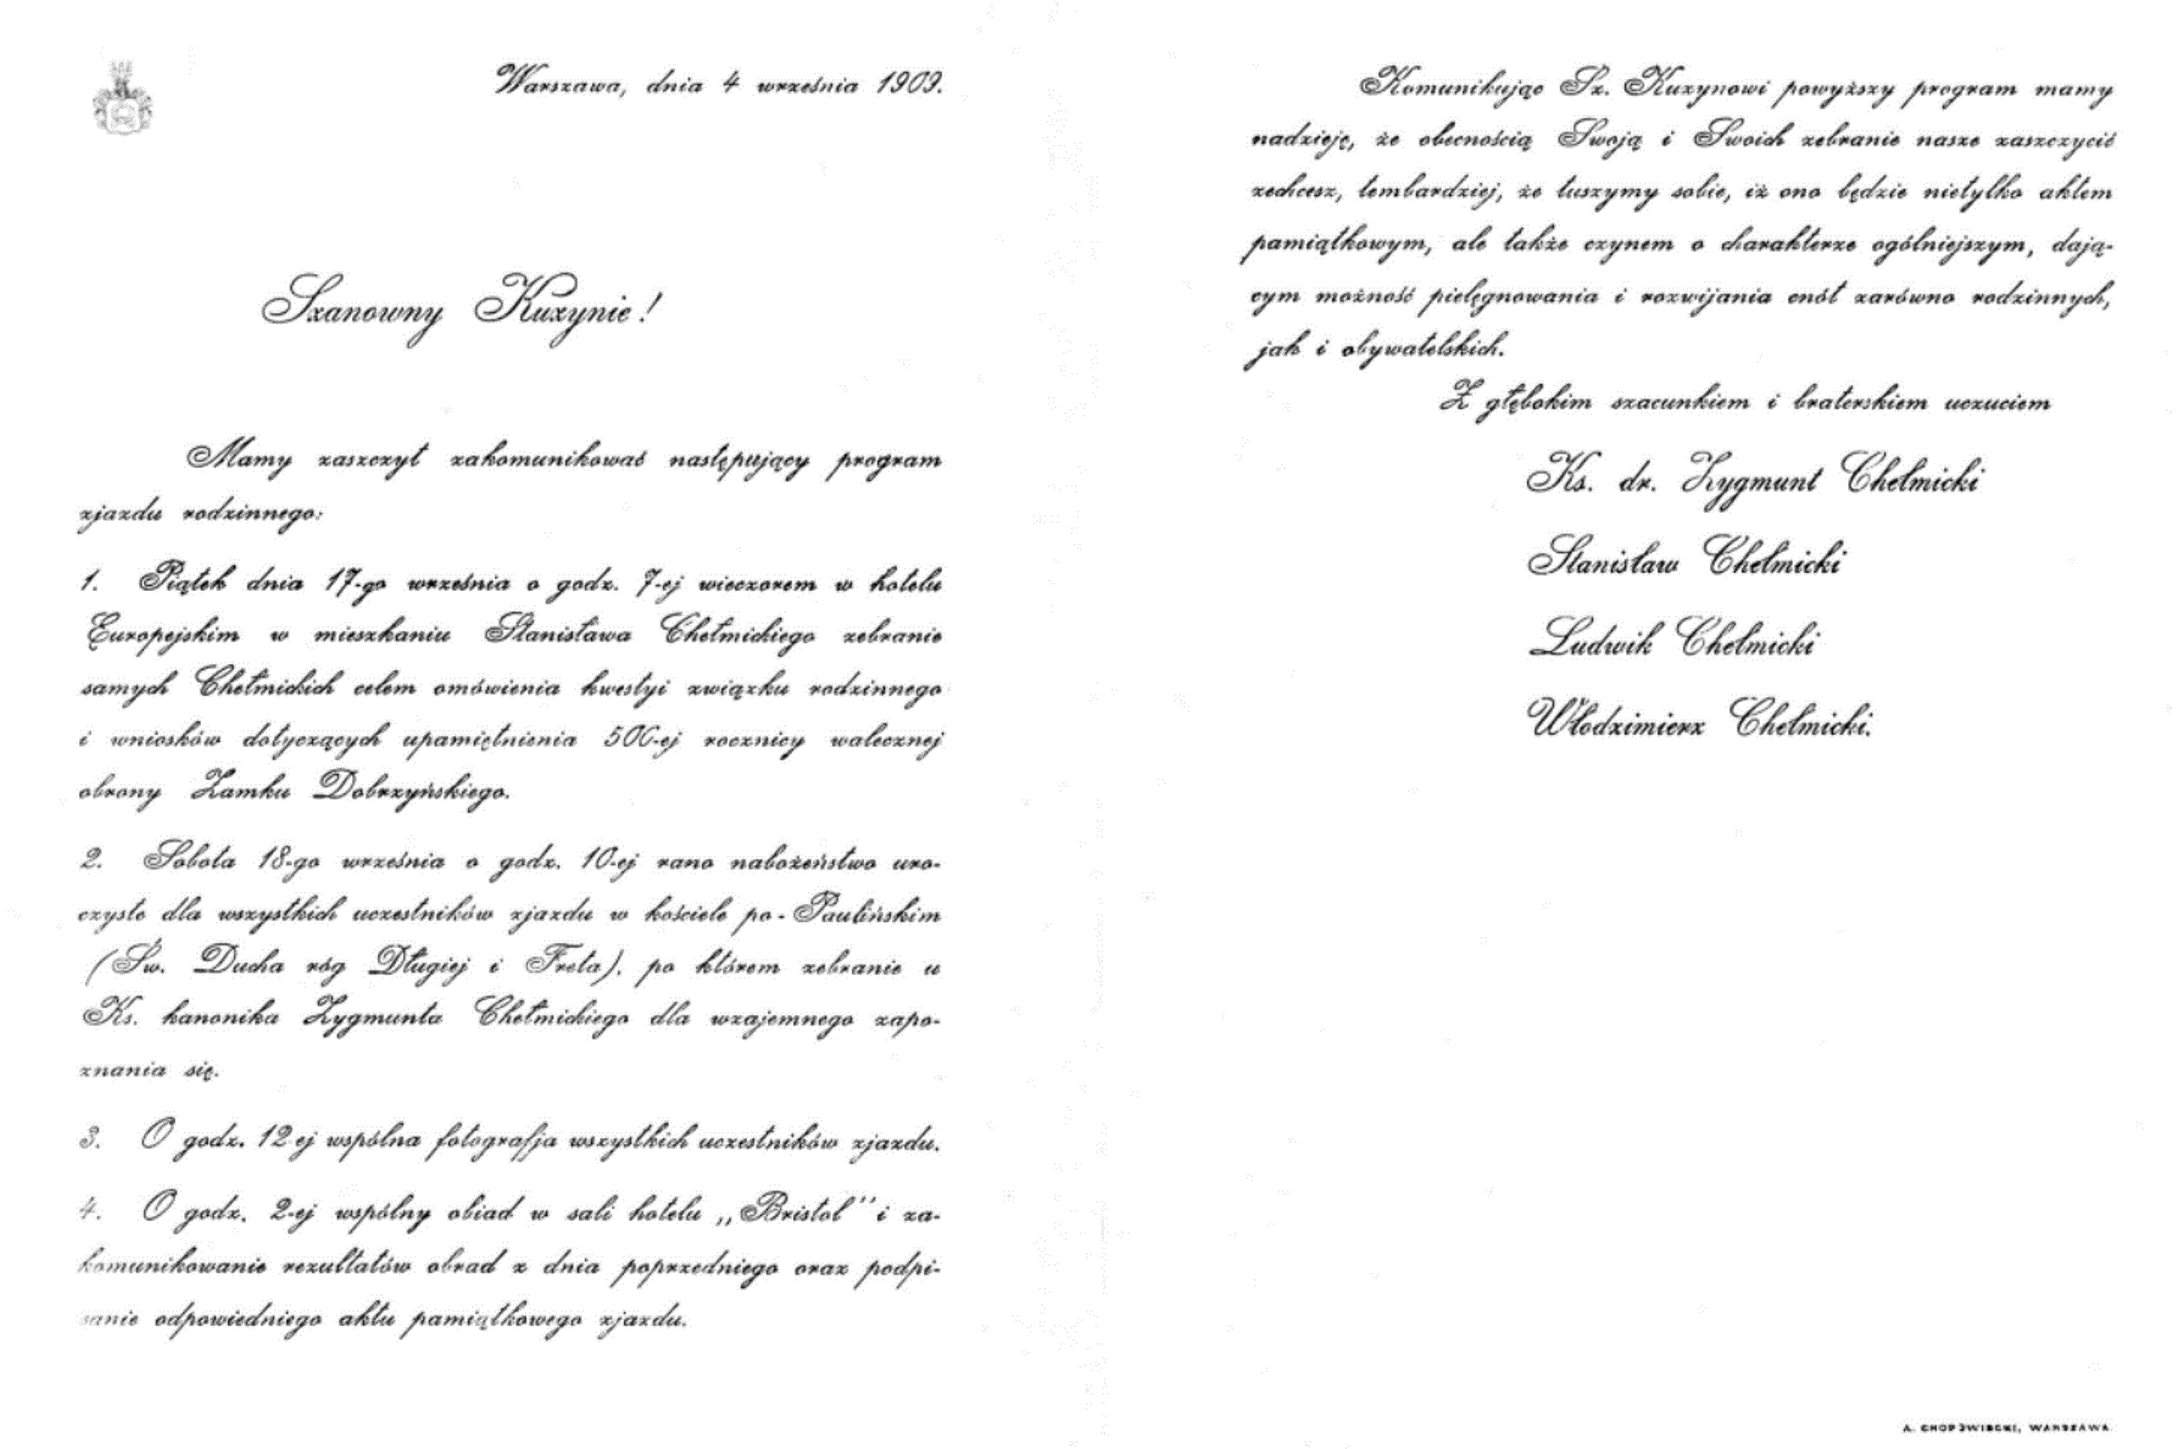 Warszawa, dnia 4 września 1909.
Szanowny Kuzynie!
Mamy zaszczyt zakomunikować następujący program
zjazdu rodzinnego:
1. Piątek dnia 17-go września o godz. 7-ej wieczorem w hotelu
Europejskim w mieszkaniu Stanisława Chełmickiego zebranie
samych Chełmickich celem omówienia kwestyi związku rodzinnego
i wniosków dotyczących upamiętnienia 500-ej rocznicy walecznej
obrony Zamku Dobrzyńskiego.
2. Sobota 18-go września o godz. 10-ej rano nabożeństwo uro-
czyste dla wszystkich uczestników zjazdu w kościele po-Paulińskim
(Św. Ducha róg Długiej i Freta), po którem zebranie u
Ks. kanonika Zygmunta Chełmickiego dla wzajemnego zapo-
znania się.
3. O godz. 12-ej wspólna fotografja wszystkich uczestników zjazdu.
4. O godz. 2-ej wspólny obiad w sali hotelu „Bristol" i za-
komunikowanie rezultatów obrad z dnia poprzedniego oraz podpi-
sanie odpowiedniego aktu pamiątkowego zjazdu.
Komunikując Sz. Kuzynowi powyższy program mamy
nadzieję, że obecnością Swoją i Swoich zebranie nasze zaszczycić
zechcesz, tembardziej, że tuszymy sobie, iż ono będzie nietylko aktem
pamiątkowym, ale także czynem o charakterze ogólniejszym, dają-
cym możność pielęgnowania i rozwijania cnót zarówno rodzinnych,
jak i obywatelskich.
Z głębokim szacunkiem i braterskiem uczuciem
Ks. dr. Zygmunt Chełmicki
Stanisław Chełmicki
Ludwik Chełmicki
Włodzimierz Chełmicki.
A. WARSZAWA